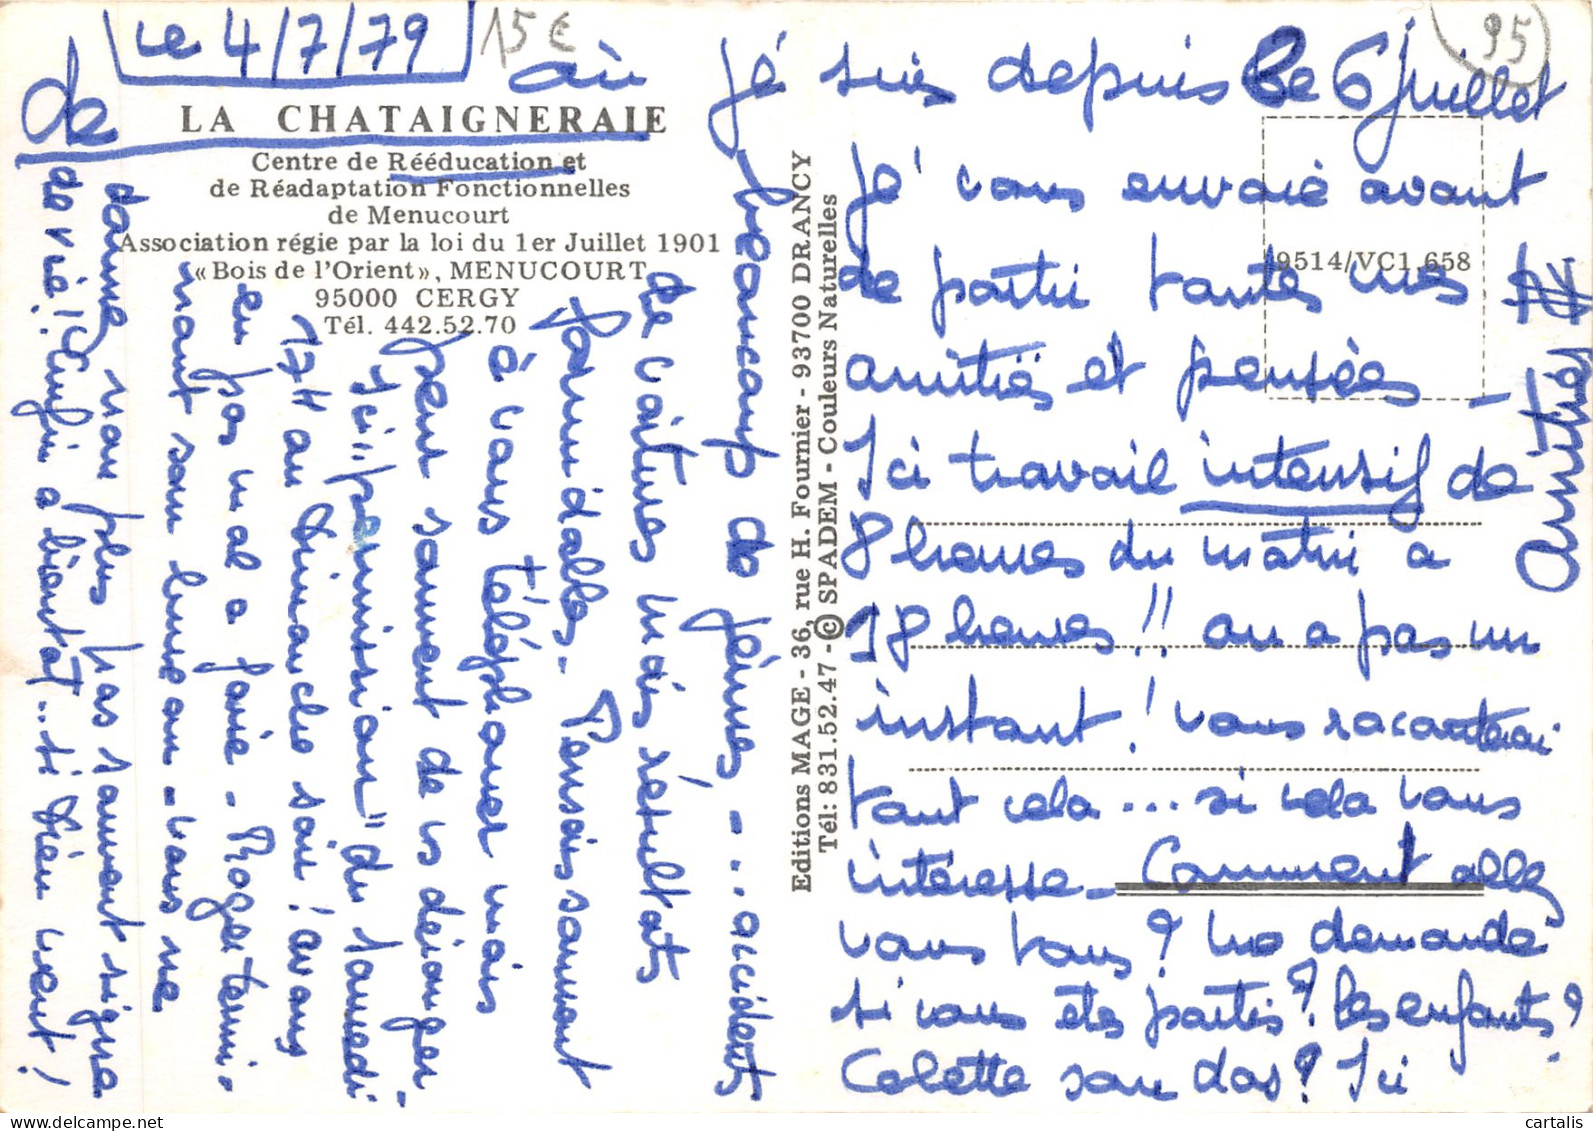 Le 4/7/79
15€
95
de
LA CHATAIGNERAIE
où
Centre de Rééducation et
de Réadaptation Fonctionnelles
de Menucourt
Association régie par la loi du 1er Juillet 1901
«Bois de l'Orient», MENUCOURT
95000 CERGY
Tél. 442.52.70
Editions MAGE - 36, rue H. Fournier - 93700 DRANCY
Tél: 831.52.47 - © SPADEM - Couleurs Naturelles
9514/VC1 658
je suis depuis le 6 juillet
je vous envoie avant
de partir toutes mes
amitiés et pensées -
Ici travail intensif de
8 heures du matin a
18 heures!! on a pas un
instant! vous raconterai
tout cela... si cela vous
intéresse - Comment allez
vous tous? me demande
si vous êtes partis? les enfants?
Colette son dos? Ici
beaucoup de jeunes -.. accidents
de voitures mais résultats
formidables. Pensais souvent
à vous téléphoner mais
peur souvent de vs déranger.
Ici "permission" du samedi
17H au dimanche soir! avons
eu pas mal a faire - Roger termi-
nant son bureau - vous ne
donne non plus pas souvent signe
de vie! Enfin a bientôt.. si Dieu veut!
Amitiés